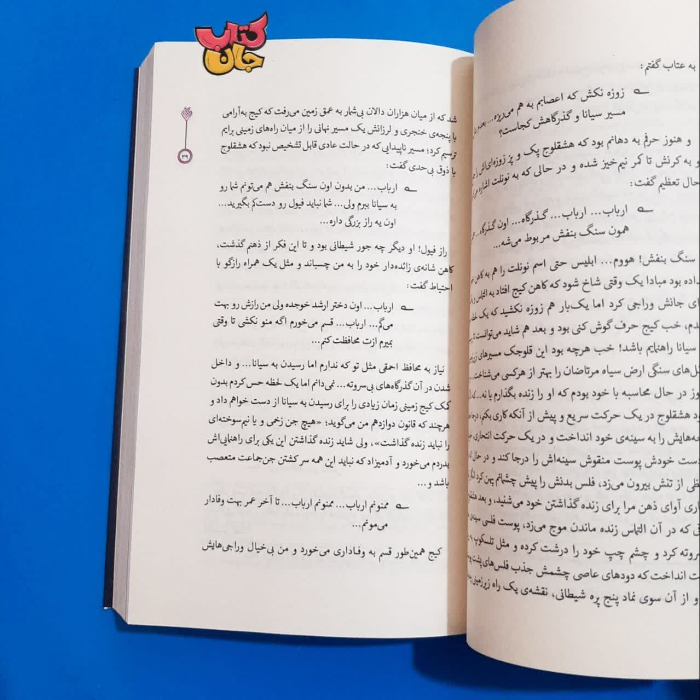 کتاب
جان
به عتاب گفتم:
زوزه نکش که اعصابم به هم می‌ریزه... بعدم
مسیر سیانا و گذرگاهش کجاست؟
و هنوز حرفم به دهانم بود که هشفلوج پک و پز زوزه‌ای‌اش
و به کرنش تا کمر نیم‌خیز شده و در حالی که به نونلت اشاره
حال تعظیم گفت:
ارباب... ارباب... گذرگاه... اون گذرگاه...
همون سنگ بنفش مربوط می‌شه...
سنگ بنفش! هووم... ابلیس حتی اسم نونلت را هم به کاهن
داده بود مبادا یک وقتی شاخ شود که کاهن کیج افتاد به التماس
ای جانش وراجی کرد اما یک‌بار هم زوزه نکشید که یک
دم، خب کیج حرف گوش کنی بود و بعد هم شاید می‌توانست تا
سیانا راهنمایم باشد! خب هرچه بود این قلوجک مسیرهای زیر
ل‌های سنگی ارض سیاه مرتاضان را بهتر از هرکسی می‌شناخت
وز در حال محاسبه با خود بودم که او را زنده بگذارم یا نه...
ود هشفلوج در یک حرکت سریع و پیش از آنکه کاری بکنم،
جه‌هایش را به سینه‌ی خود انداخت و در یک حرکت انتحاری
ست خودش پوست منقوش سینه‌اش را درجا کند و در حال
ظی از تنش بیرون می‌زد، فلس بدنش را پیش چشمانم پهن کرد
اری آوای ذهن مرا برای زنده گذاشتن خود می‌شنید، و بعد
ی که در آن التماس زنده ماندن موج می‌زد، پوست فلسی
سروته کرد و چشم چپ خود را درشت کرده و مثل تلسکوپ
ت انداخت که دودهای عاصی چشمش جذب فلس‌های پشت
و از آن سوی نماد پنج پره شیطانی، نقشه‌ی یک راه زیرزمینی
شد که از میان هزاران دالان بی‌شمار به عمق زمین می‌رفت که کیج به‌آرامی
با پنجه‌ی خنجری و لرزانش یک مسیر نهانی را از میان راه‌های زمینی برایم
ترسیم کرد؛ مسیر ناپیدایی که در حالت عادی قابل تشخیص نبود که هشفلوج
با ذوق بی‌حدی گفت:
ارباب... من بدون اون سنگ بنفش هم می‌تونم شما رو
به سیانا ببرم ولی... شما نباید فیول رو دست‌کم بگیرید...
اون یه راز بزرگی داره...
راز فیول! او دیگر چه جور شیطانی بود و تا این فکر از ذهنم گذشت،
کاهن شانه‌ی زائده‌دار خود را به من چسباند و مثل یک همراه رازگو با
احتیاط گفت:
ارباب... اون دختر ارشد خوجده ولی من رازش رو بهت
می‌گم... ارباب... قسم می‌خورم اگه منو نکشی تا وقتی
بمیرم ازت محافظت کنم...
نیاز به محافظ احمقی مثل تو که ندارم اما رسیدن به سیانا... و داخل
شدن در آن گذرگاه‌های بی‌سروته... نمی‌دانم اما یک لحظه حس کردم بدون
کمک کیج زمینی زمان زیادی را برای رسیدن به سیانا از دست خواهم داد و
هرچند که قانون دوازدهم من می‌گوید؛ «هیچ جن زخمی و یا نیم‌سوخته‌ای
را نباید زنده گذاشت»، ولی شاید زنده گذاشتن این یکی برای راهنمایی‌اش
بدردم می‌خورد و آدمیزاد که نباید این همه سر کشتن جن‌جماعت متعصب
باشد و...
ممنونم ارباب... ممنونم ارباب... تا آخر عمر بهت وفادار
می‌مونم...
کیج همین‌طور قسم به وفاداری می‌خورد و من بی‌خیال وراجی‌هایش